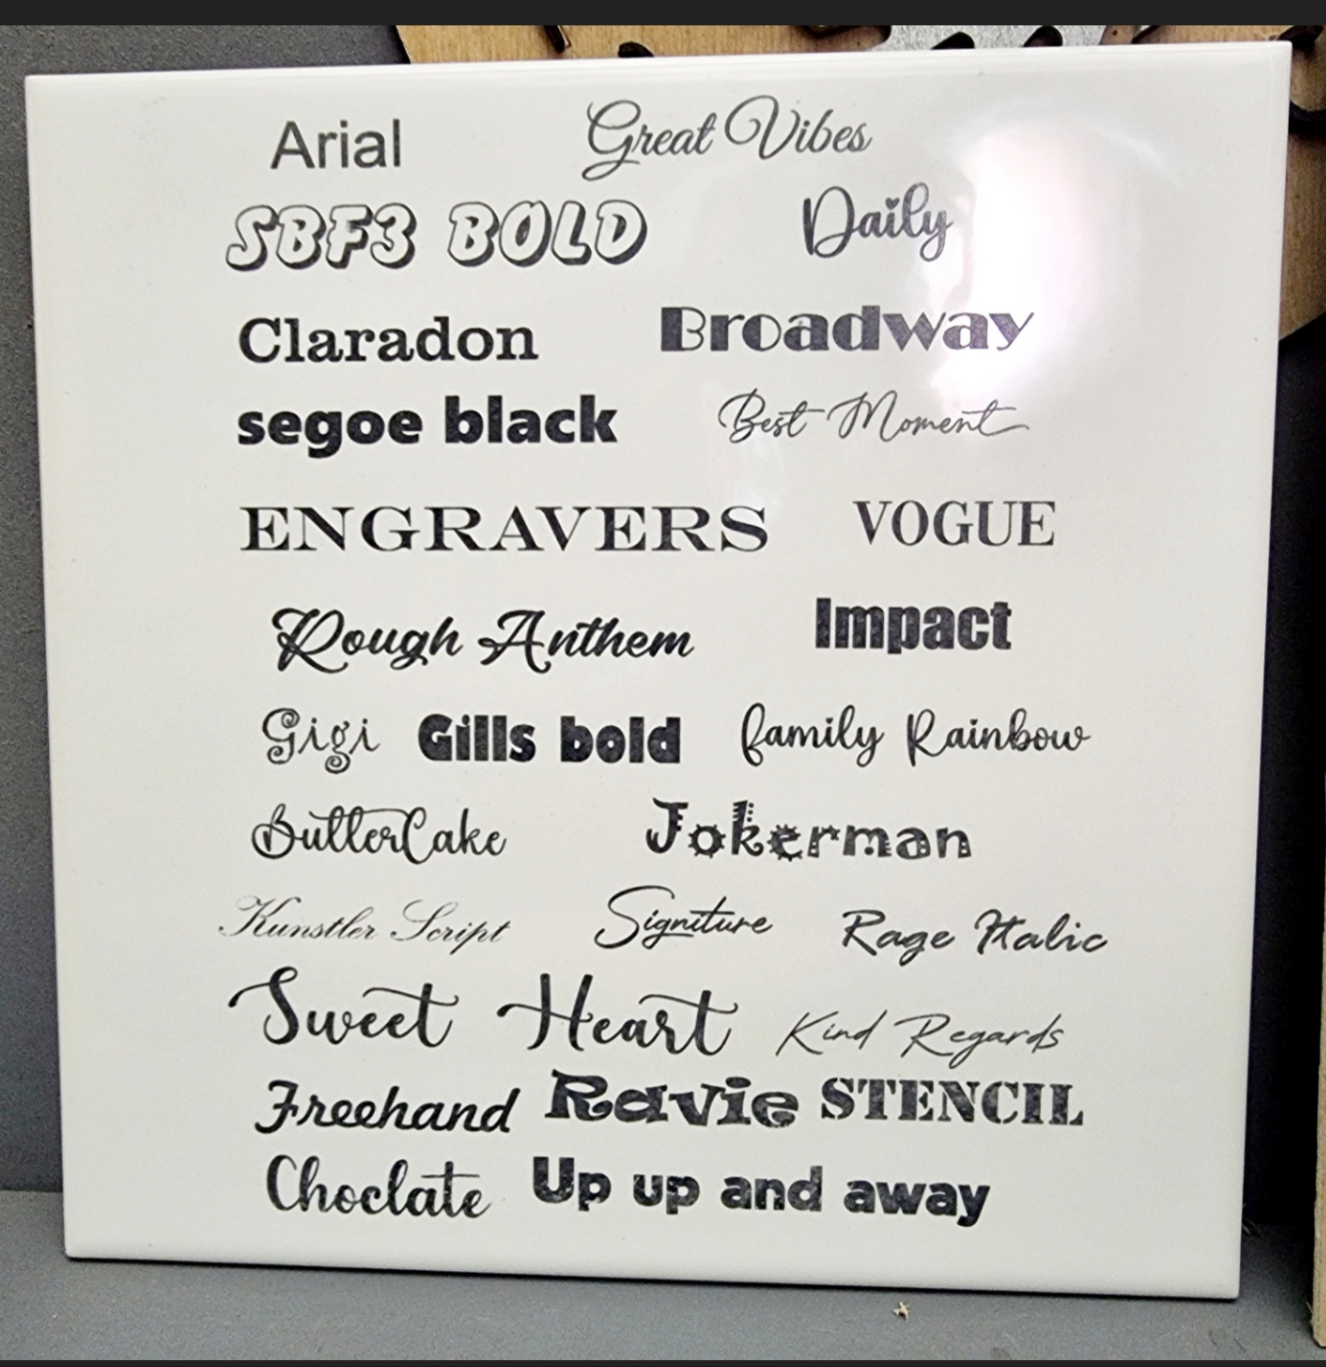 Arial Great Vibes
SBF3 BOLD Daily
Claradon Broadway
segoe black Best Moment
ENGRAVERS VOGUE
Rough Anthem Impact
Gigi Gills bold family Rainbow
ButterCake Jokerman
Kunstler Script Signiture Rage Italic
Sweet Heart Kind Regards
Freehand Ravie STENCIL
Choclate Up up and away